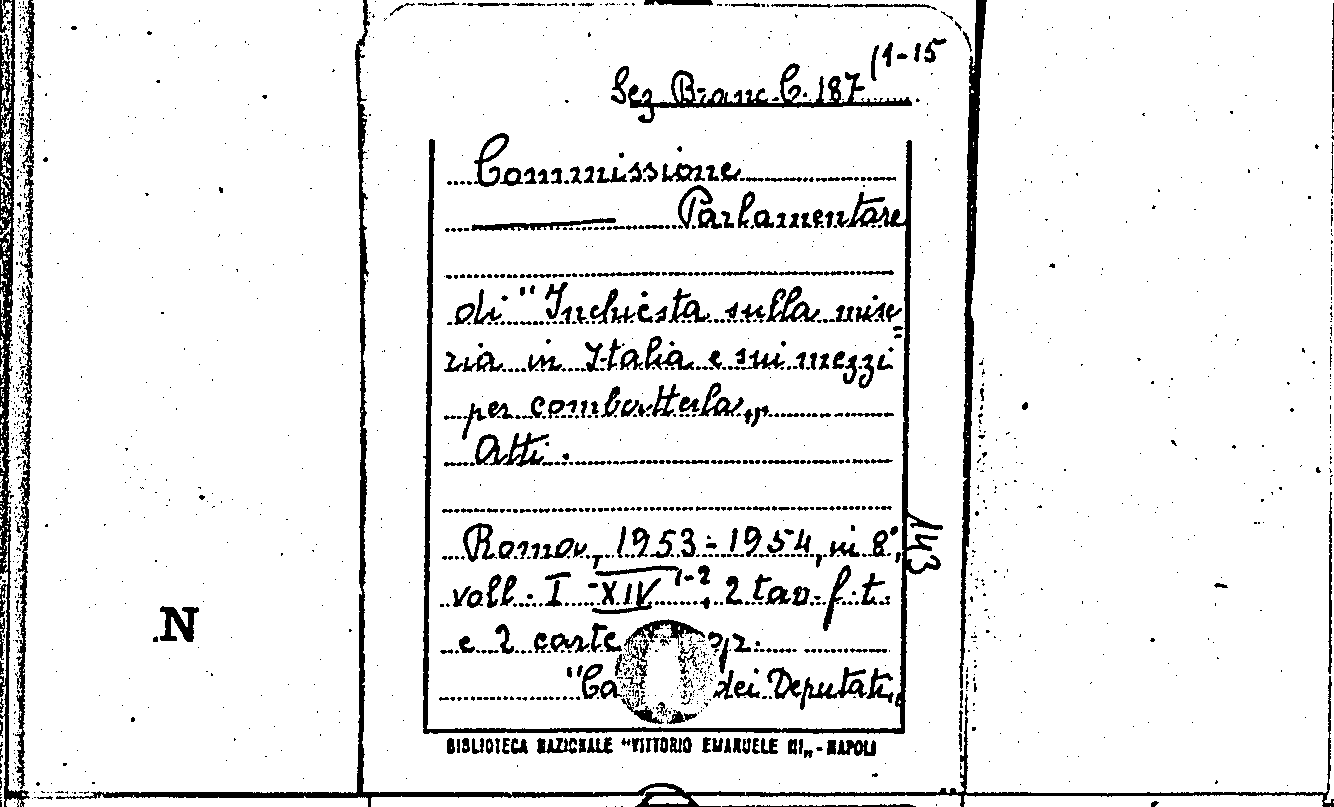 Sez Branc. C. 187 (1-15
Commissione
Parlamentare
di "Inchiesta sulla mise
ria in Italia e sui mezzi
per combatterla„
Atti.
Roma, 1953-1954, in 8°,
voll. I-XIV 1-2, 2 tav. f. t.
e 2 carte
"Ca dei Deputati„
143
N
BIBLIOTECA NAZIONALE "VITTORIO EMANUELE III„ - NAPOLI